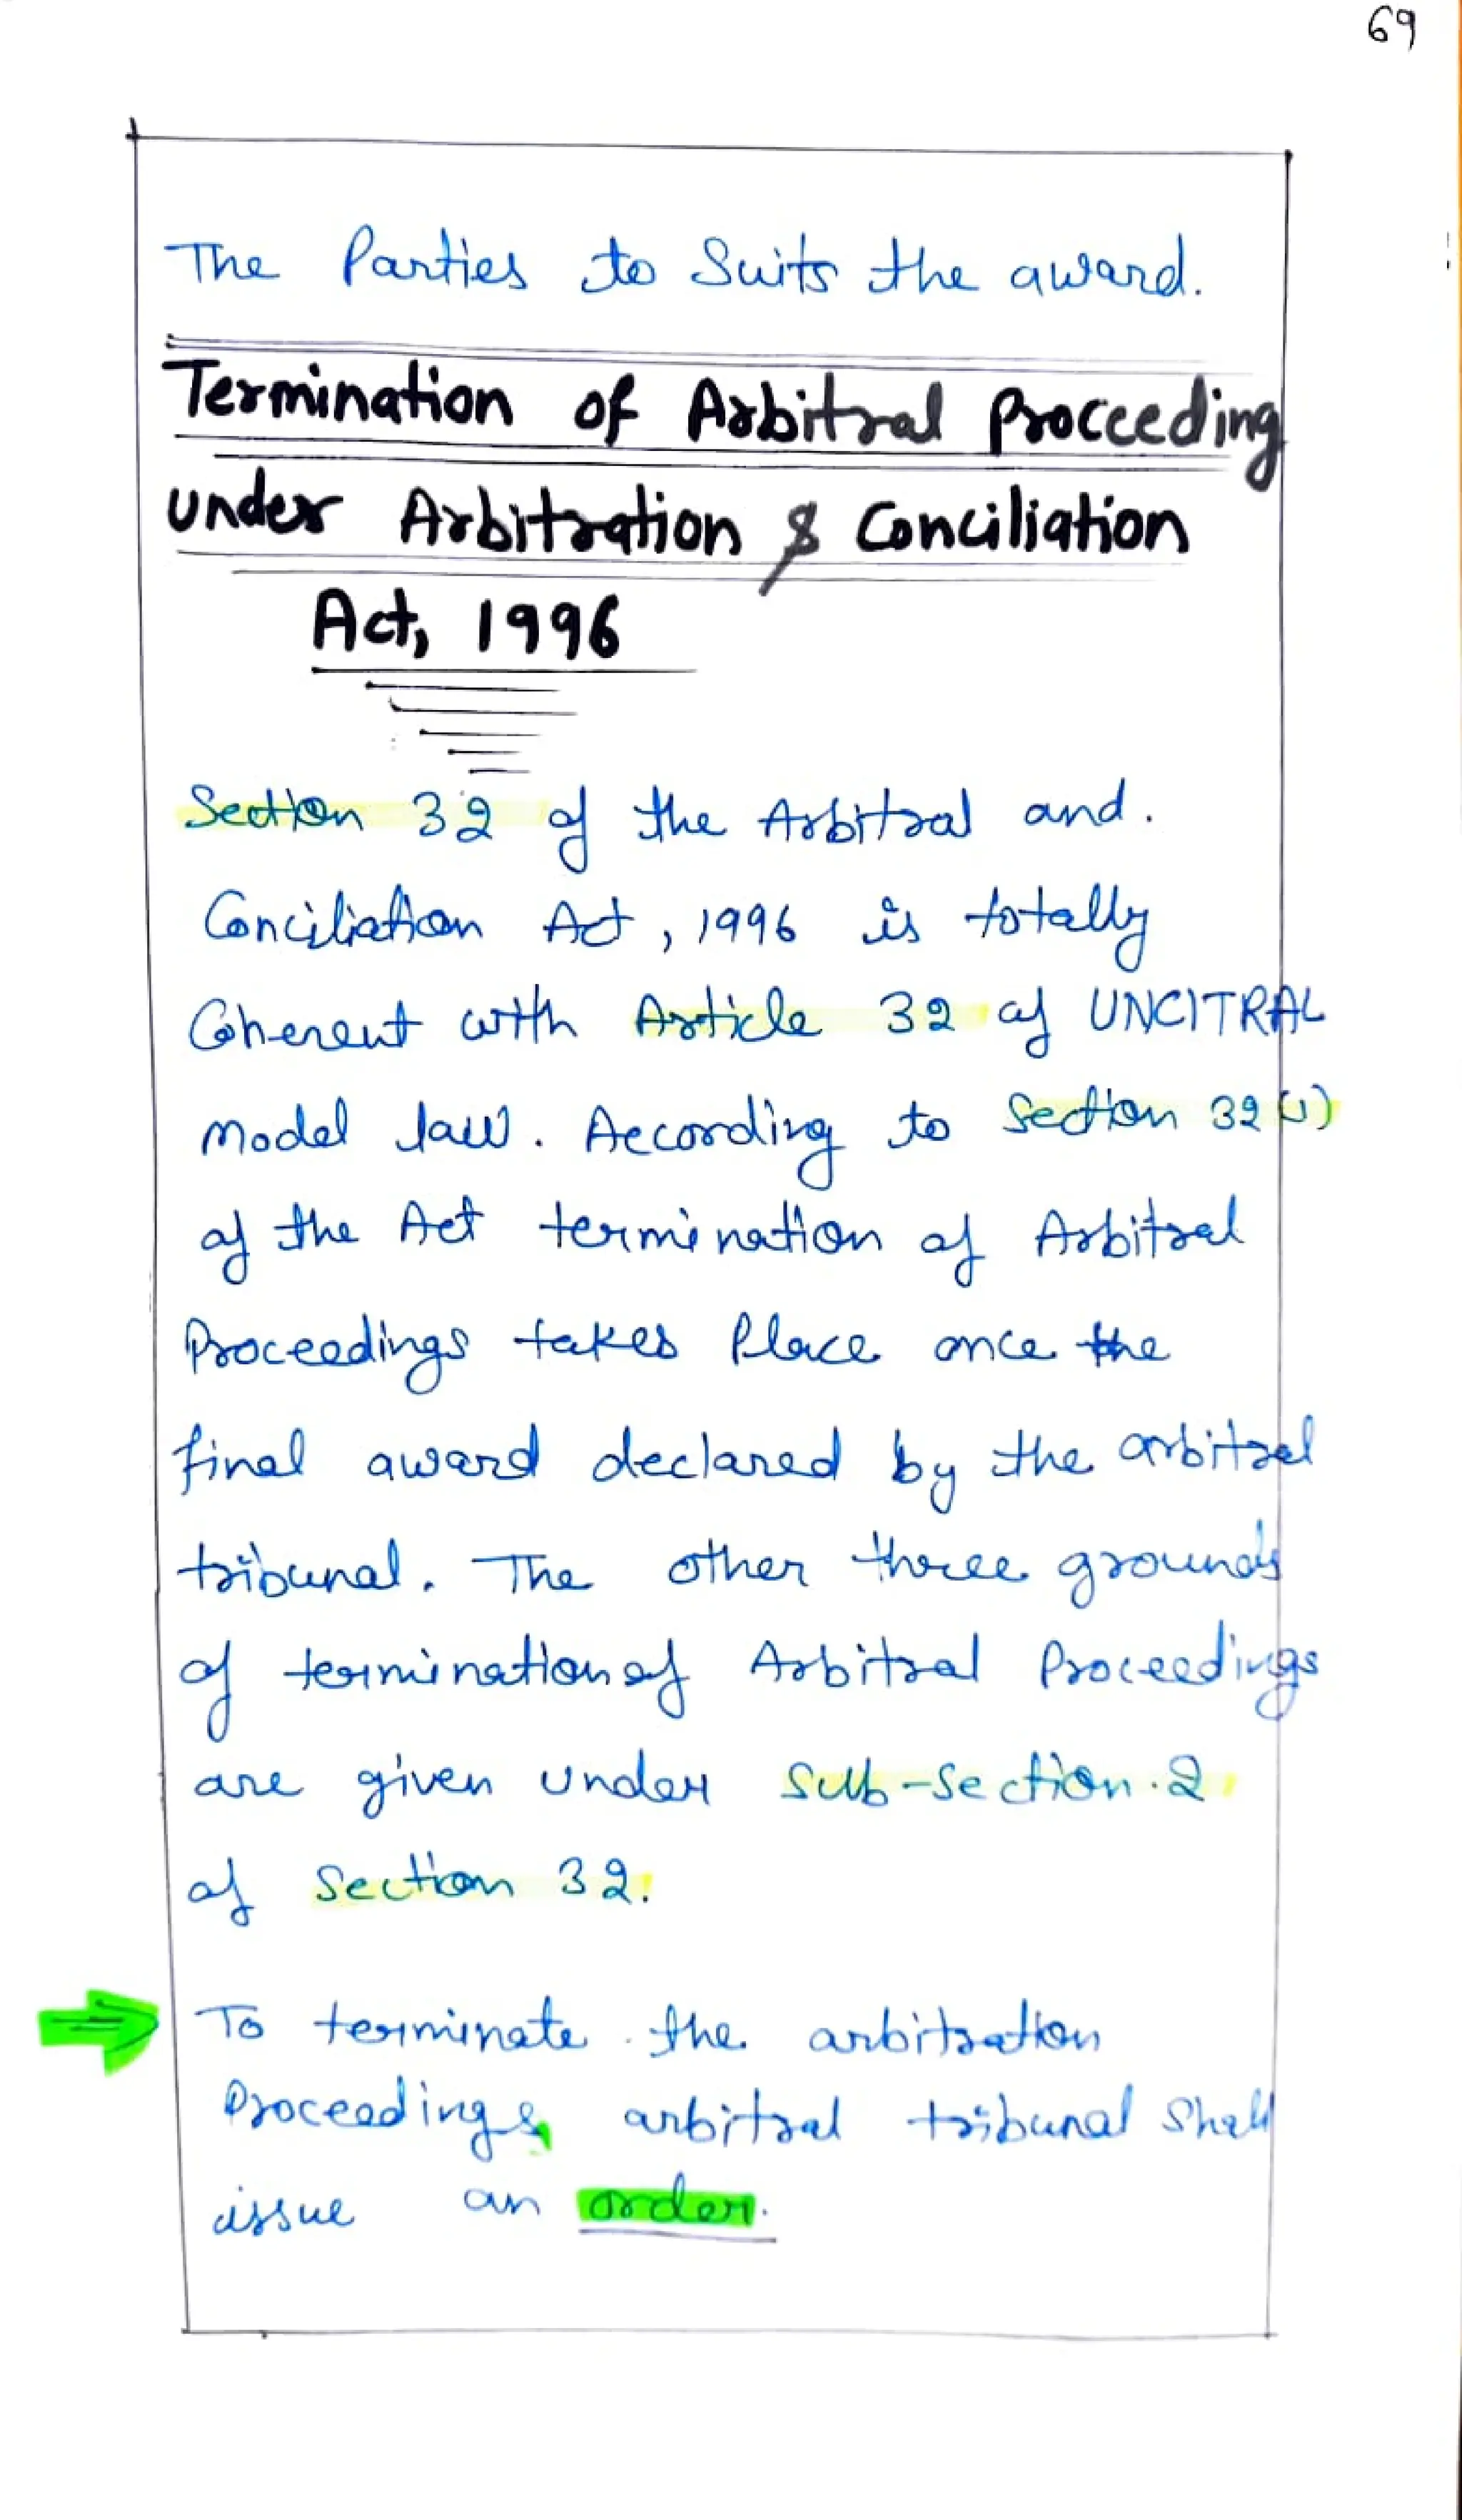 69
The Parties to Suits the award.
Termination of Arbitral Proceeding
under Arbitration & Conciliation
Act, 1996
Section 32 of the Arbitral and.
Conciliation Act, 1996 is totally
Coherent with Article 32 of UNCITRAL
Model law. According to Section 32(1)
of the Act termination of Arbitral
Proceedings takes Place once the
final award declared by the arbitral
tribunal. The other three grounds
of termination of Arbitral Proceedings
are given under Sub-section.2
of Section 32.
To terminate the arbitration
Proceedings, arbitral tribunal Shall
issue an order.